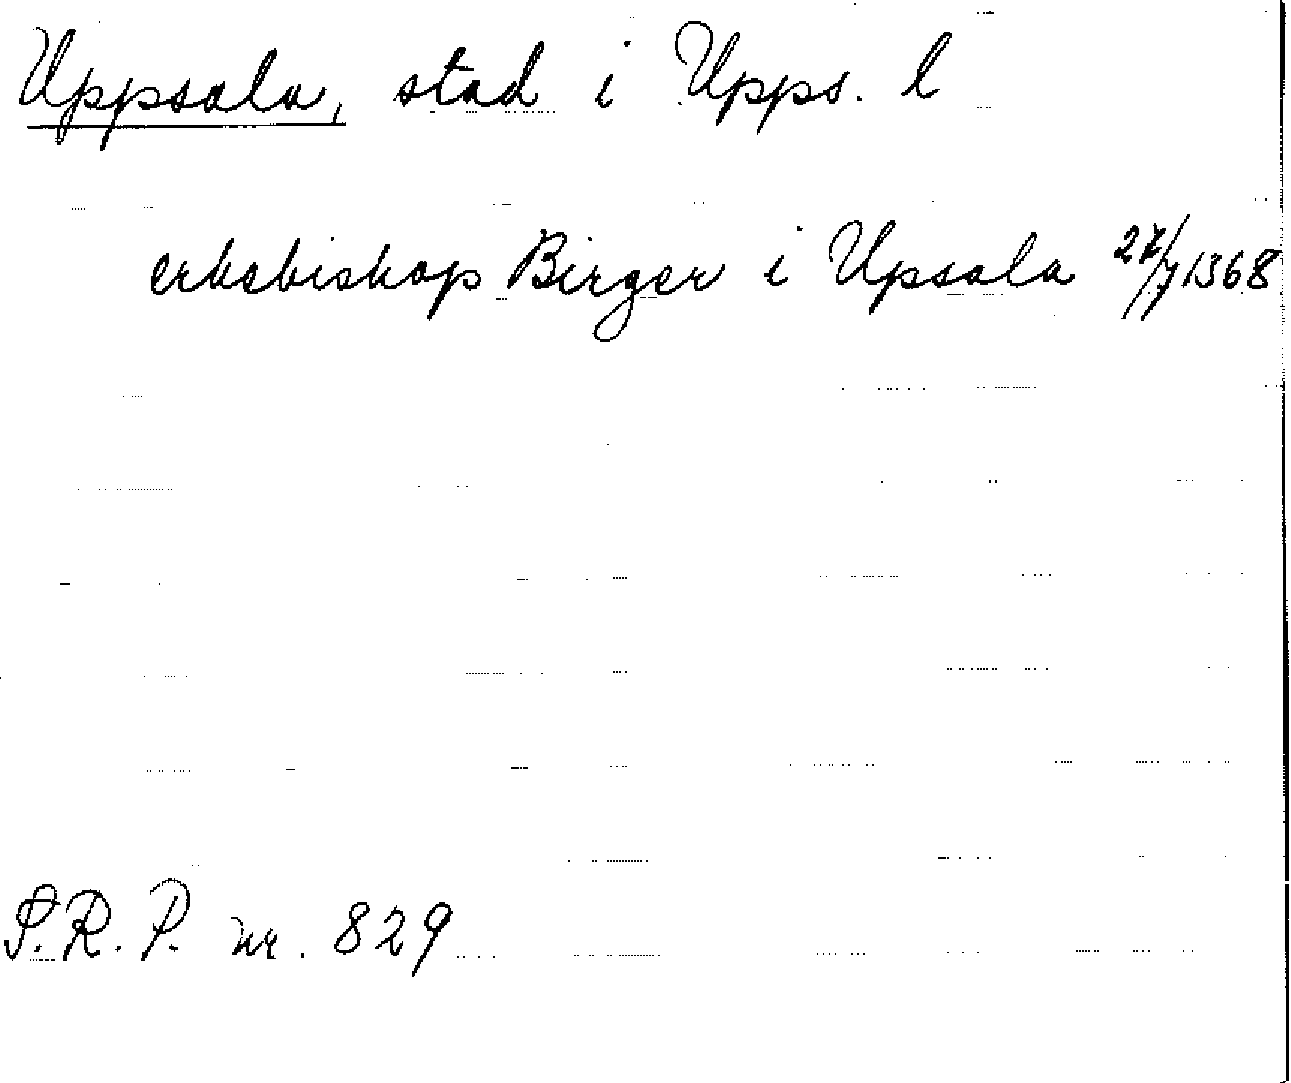 Uppsala, stad i Upps. l
erkebiskop Birger i Upsala /7 1368
S.R.P. nr. 829